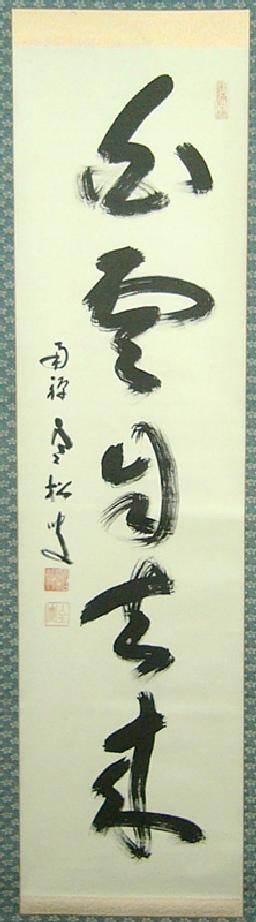 白雲自去来
南禅寒松叟